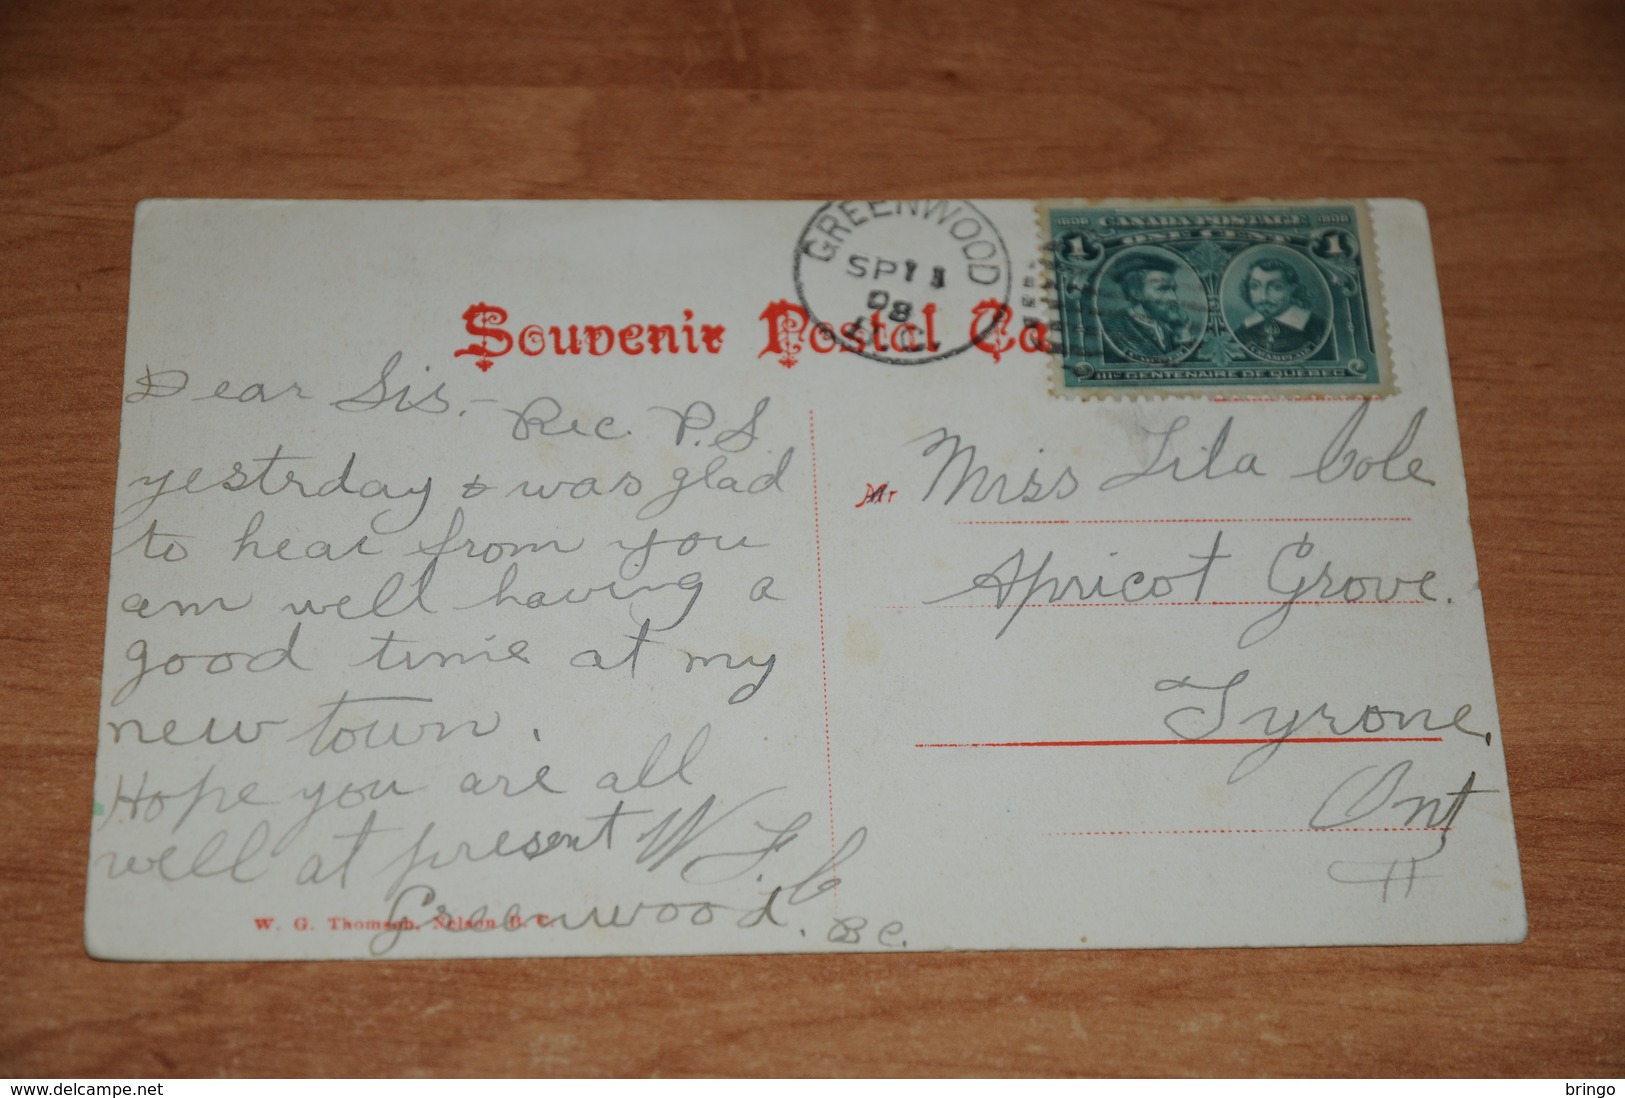 GREENWOOD
SP 11
08
B.C.
1608 CANADA POSTAGE 1908
1 ONE CENT 1
CARTIER CHAMPLAIN
IIIe CENTENAIRE DE QUEBEC
Souvenir Postal Ca
Dear Sis.-
Rec. P.S.
yestrday & was glad
to hear from you
am well having a
good time at my
new town.
Hope you are all
well at present W.F.C.
Greenwood. BC.
W. G. Thomson, Nelson B. C.
M r Miss Lila Cole
Apricot Grove.
Tyrone.
Ont
delcampe.net
bringo